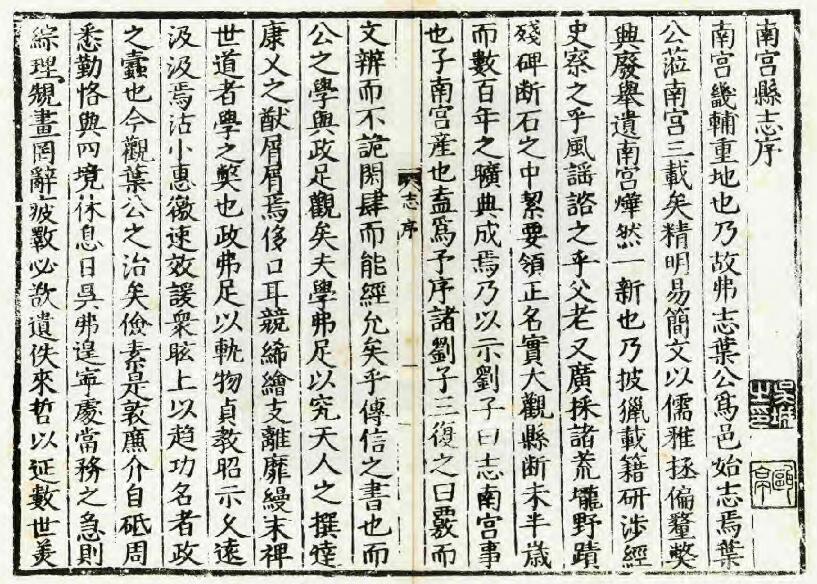 南宮縣志序
南宮畿輔重地也乃故弗志葉公爲邑始志焉葉
公蒞南宮三載矣精明易簡文以儒雅拯偏釐獘
興廢舉遺南宮燁然一新也乃披獵載籍研涉經
史察之乎風謡諮之乎父老又廣採諸荒壠野蹟
殘碑断石之中絜要領正名實大觀縣断未半歳
而數百年之曠典成焉乃以示劉子曰志南宮事
也子南宮産也盍爲予序諸劉子三復之曰覈而
志序
一
文辨而不詭閎肆而能經允矣乎傳信之書也而
公之學與政足觀矣夫學弗足以究天人之撰達
康乂之猷屑屑焉侈口耳競絺繪支離靡縵末裨
世道者學之獘也政弗足以軌物貞教昭示久遠
汲汲焉沽小惠徼速效諼衆眩上以趋功名者政
之蠹也今觀葉公之治矣儉素是敦廉介自砥周
悉勤恪與四境休息日昃弗遑寧處當務之急則
綜理䂓畫罔辭疲斁必欲遺佚來哲以延數世羙